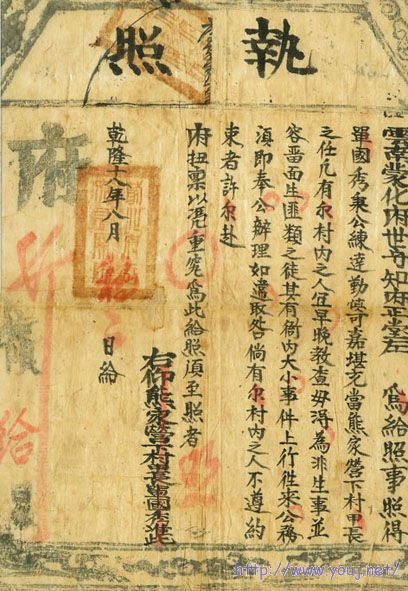 執照
雲南蒙化府世守知府正堂左 爲給照事照得
單國秀秉公練達勤慎可嘉堪充當熊家營下村甲長
之任凡有尔村内之人在早晚教查毋得為非生事並
容畨面生匪類之徒其有衙内大小事件上行徃來公務
須即奉公辦理如違取咎倘有尔村内之人不遵約
束者許尔赴
府扭禀以凴重究爲此給照須至照者
右仰熊家營下村甲長單國秀准此
乾隆十八年八月 日給
府
行
給
http://www.youj.net/